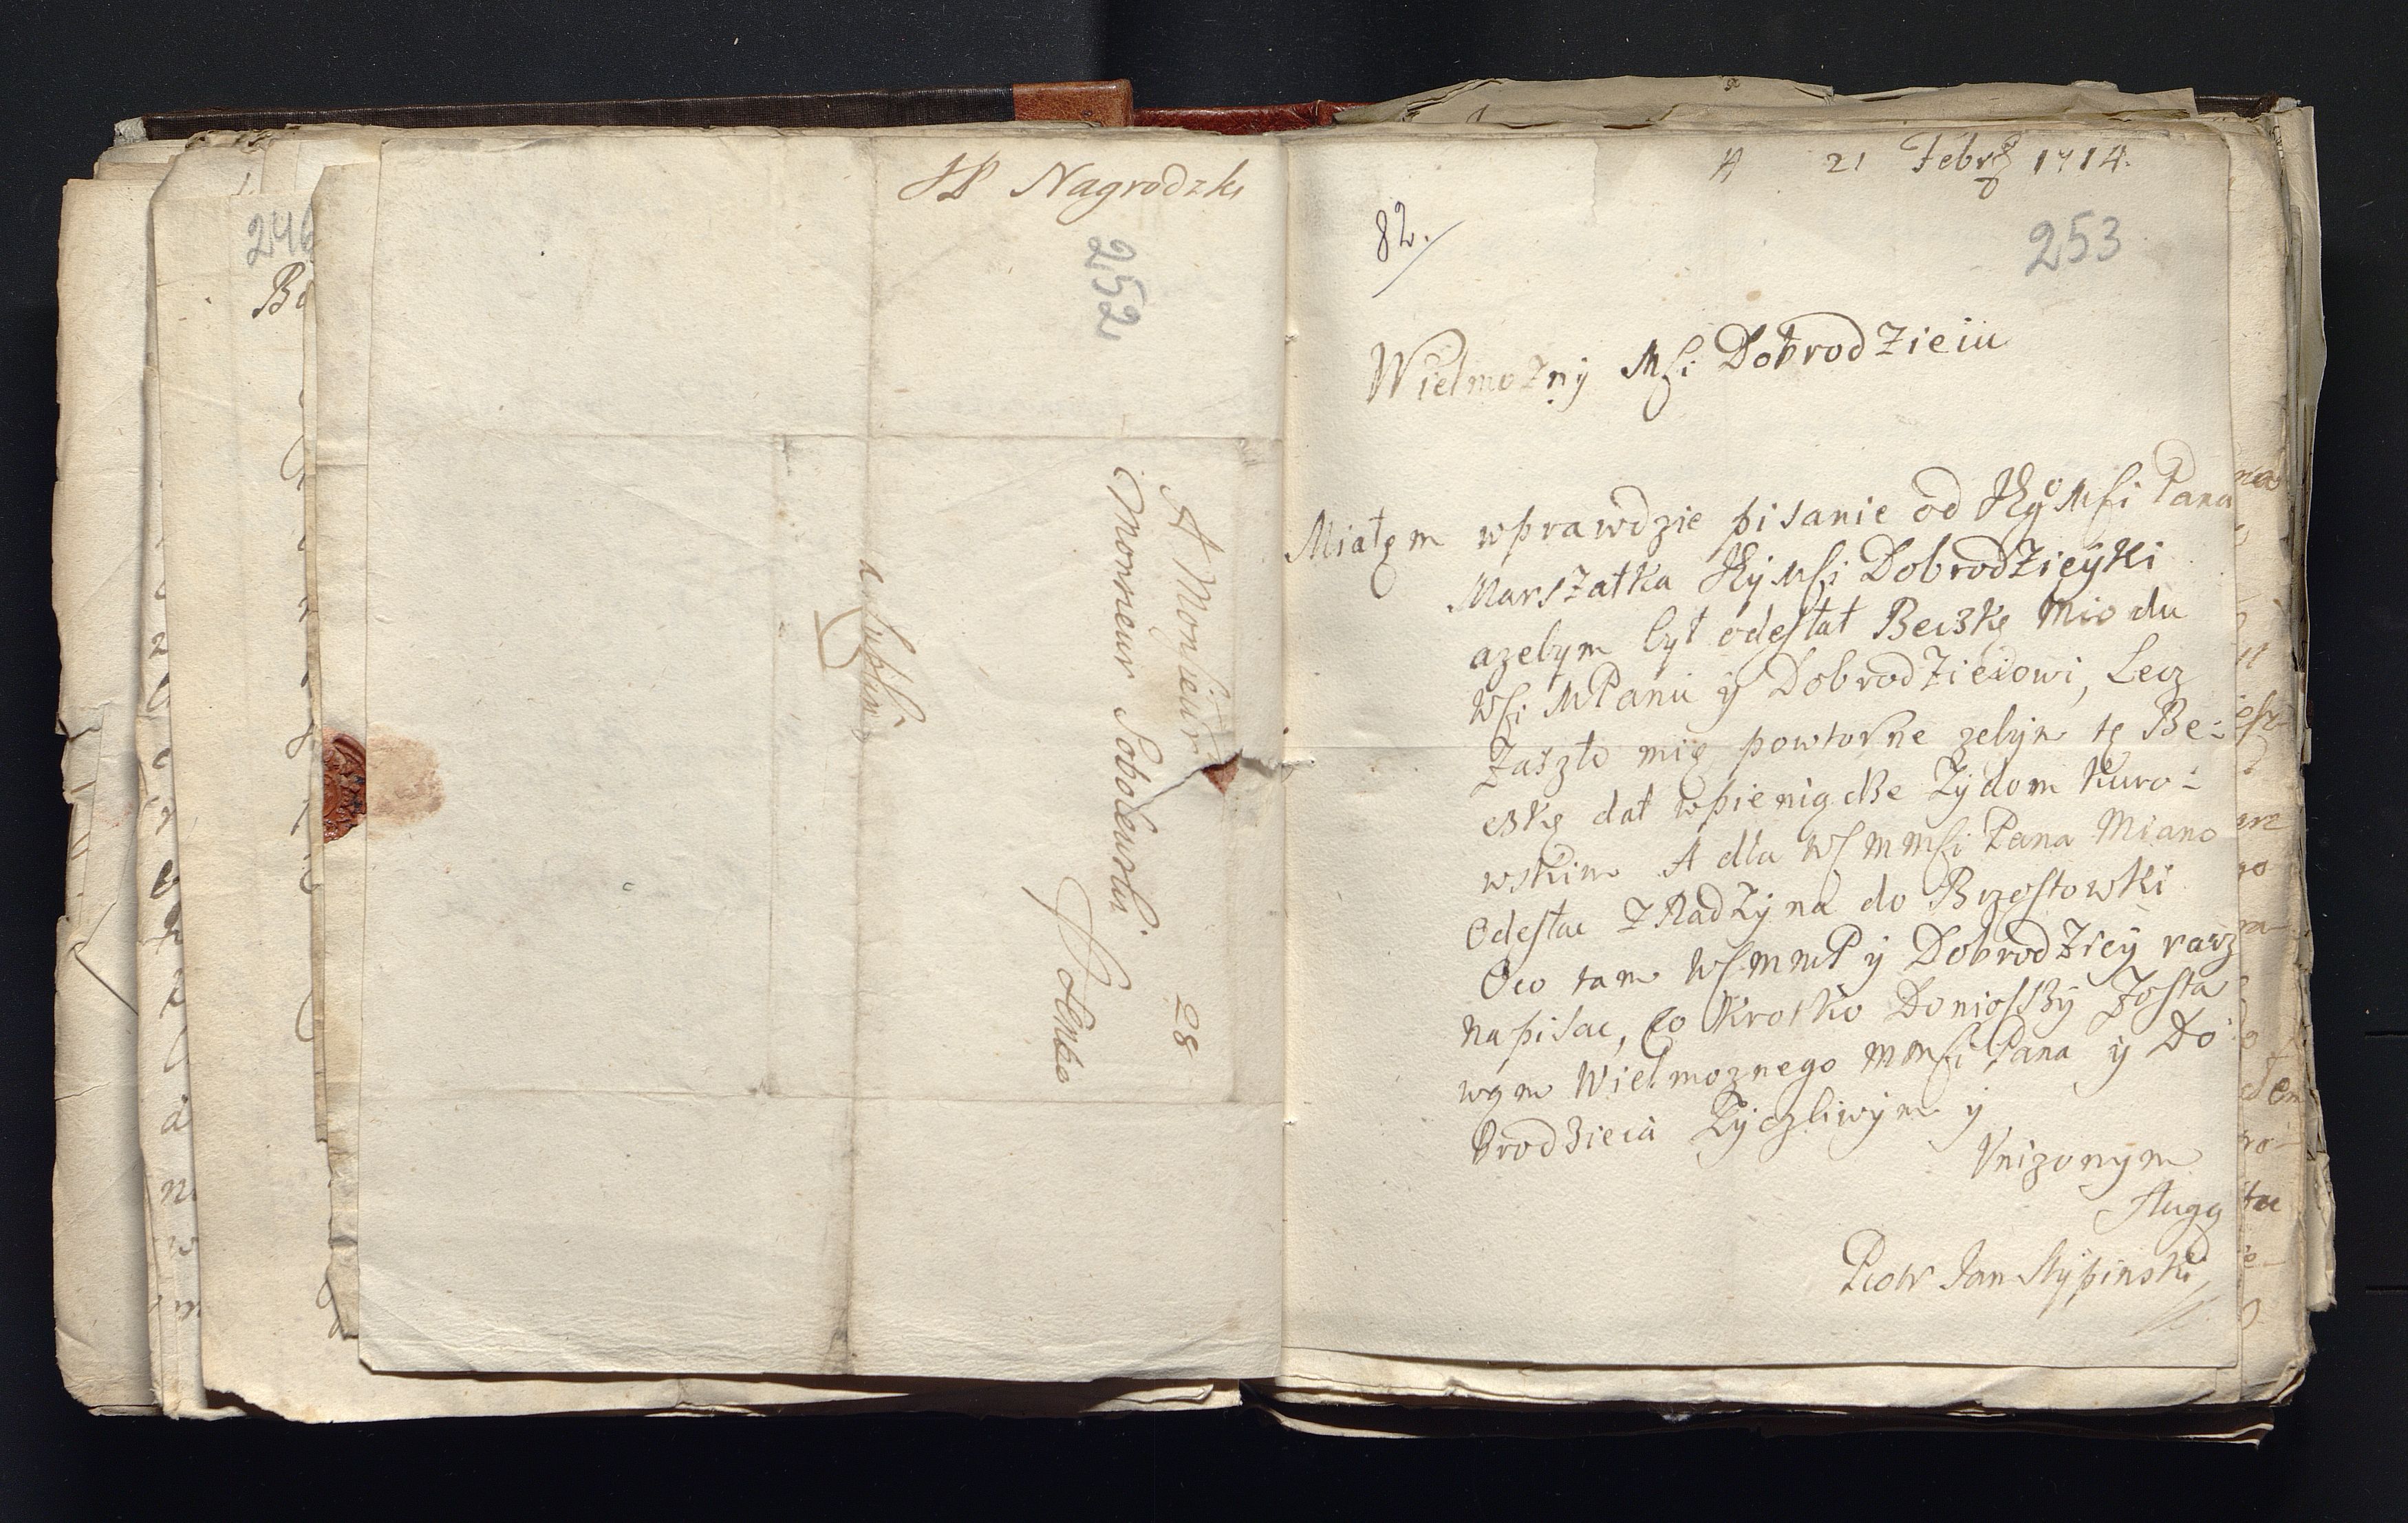 JP Nagrodzki
252
A Monsieur
Monsieur Sobolewski
28
a Lublin
246
A 21 Febr 1714.
82.
253
Wielmozny Msci Dobrodzieiu
Miałęm wprawdzie pisanie od JKgo Msci Pana
Marszałka JKy Msci Dobrodzieyki
azebym był odesłał Beczkę Miodu
WSci MPanu y Dobrodzieiowi, Lecz
Zaszło mię powtorne zebym tę Be-
czkę dał wpieniądze Zydom Kuro-
wskim A dla WSc MMSci Pana Miano
Odesłac Z Radzyna do Brzostowki
Oco tam WSc MMP y Dobrodziey racz
napisac, Co Krotko Doniosszy Zosta
wam Wielmoznego MMSci Pana y Do
brodzieia Zyczliwym y
Unizonym
Sługą
Piotr Jan Stypinski